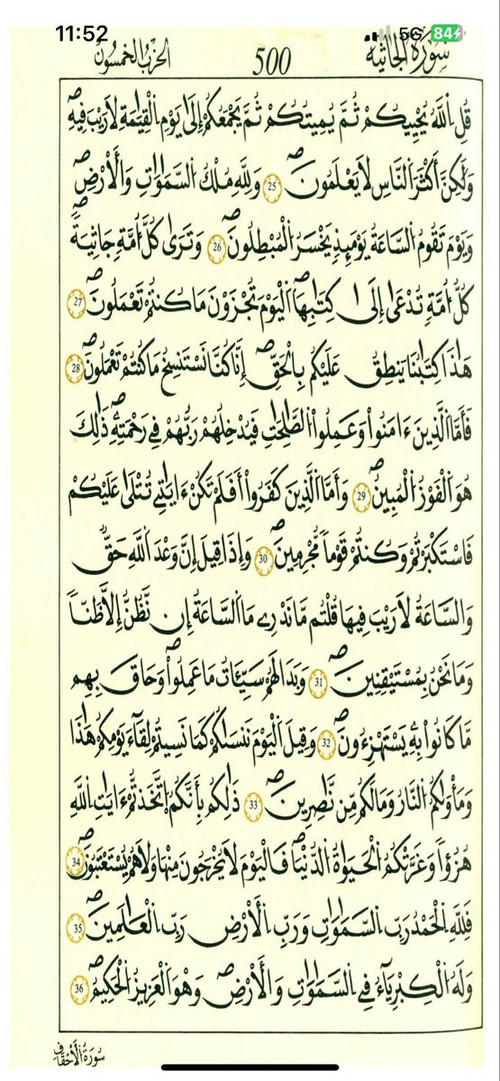 11:52
5G 84
سُورَةُ الْجَاثِيَةِ
500
الحِزْبُ الخَمْسُونَ
قُلِ اللَّهُ يُحْيِيكُمْ ثُمَّ يُمِيتُكُمْ ثُمَّ يَجْمَعُكُمْ إِلَىٰ يَوْمِ الْقِيَٰمَةِ لَا رَيْبَ فِيهِ
وَلَٰكِنَّ أَكْثَرَ النَّاسِ لَا يَعْلَمُونَ 25 وَلِلَّهِ مُلْكُ السَّمَٰوَٰتِ وَالْأَرْضِ
وَيَوْمَ تَقُومُ السَّاعَةُ يَوْمَئِذٍ يَخْسَرُ الْمُبْطِلُونَ 26 وَتَرَىٰ كُلَّ أُمَّةٍ جَاثِيَةً
كُلُّ أُمَّةٍ تُدْعَىٰ إِلَىٰ كِتَٰبِهَا الْيَوْمَ تُجْزَوْنَ مَا كُنتُمْ تَعْمَلُونَ 27
هَٰذَا كِتَٰبُنَا يَنطِقُ عَلَيْكُم بِالْحَقِّ إِنَّا كُنَّا نَسْتَنسِخُ مَا كُنتُمْ تَعْمَلُونَ 28
فَأَمَّا الَّذِينَ ءَامَنُوا۟ وَعَمِلُوا۟ الصَّٰلِحَٰتِ فَيُدْخِلُهُمْ رَبُّهُمْ فِي رَحْمَتِهِ ذَٰلِكَ
هُوَ الْفَوْزُ الْمُبِينُ 29 وَأَمَّا الَّذِينَ كَفَرُوا۟ أَفَلَمْ تَكُنْ ءَايَٰتِي تُتْلَىٰ عَلَيْكُمْ
فَاسْتَكْبَرْتُمْ وَكُنتُمْ قَوْمًا مُّجْرِمِينَ 30 وَإِذَا قِيلَ إِنَّ وَعْدَ اللَّهِ حَقٌّ
وَالسَّاعَةُ لَا رَيْبَ فِيهَا قُلْتُم مَّا نَدْرِي مَا السَّاعَةُ إِن نَّظُنُّ إِلَّا ظَنًّا
وَمَا نَحْنُ بِمُسْتَيْقِنِينَ 31 وَبَدَا لَهُمْ سَيِّـَٔاتُ مَا عَمِلُوا۟ وَحَاقَ بِهِم
مَّا كَانُوا۟ بِهِ يَسْتَهْزِءُونَ 32 وَقِيلَ الْيَوْمَ نَنسَىٰكُمْ كَمَا نَسِيتُمْ لِقَآءَ يَوْمِكُمْ هَٰذَا
وَمَأْوَىٰكُمُ النَّارُ وَمَا لَكُم مِّن نَّٰصِرِينَ 33 ذَٰلِكُم بِأَنَّكُمُ اتَّخَذتُّمْ ءَايَٰتِ اللَّهِ
هُزُؤًا وَغَرَّتْكُمُ الْحَيَوٰةُ الدُّنْيَا فَالْيَوْمَ لَا يُخْرَجُونَ مِنْهَا وَلَا هُمْ يُسْتَعْتَبُونَ 34
فَلِلَّهِ الْحَمْدُ رَبِّ السَّمَٰوَٰتِ وَرَبِّ الْأَرْضِ رَبِّ الْعَٰلَمِينَ 35
وَلَهُ الْكِبْرِيَآءُ فِي السَّمَٰوَٰتِ وَالْأَرْضِ وَهُوَ الْعَزِيزُ الْحَكِيمُ 36
سُورَةُ الْأَحْقَافِ